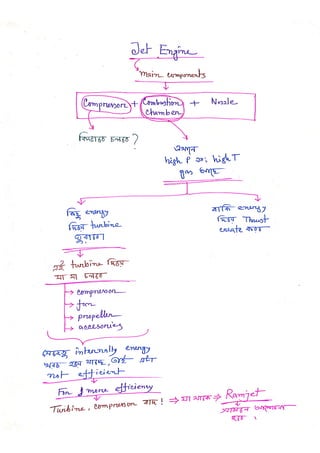 Jet Engine
main components
Compressor + Combustion chamber + Nozzle
কিভাবে চলবে ?
high P এবং high T
gas
কিছু energy
দিয়ে turbine
ঘুরবে।
বাকি energy
দিয়ে Thrust
create করবে
এই turbine দিয়ে
যা যা চলবে
→ compressor
→ fan
→ propeller
→ accesories
যেহেতু internally energy
not efficient
For more efficiency
Turbine, compressor বাদ ! ⇒ যা থাকে ⇒ Ramjet